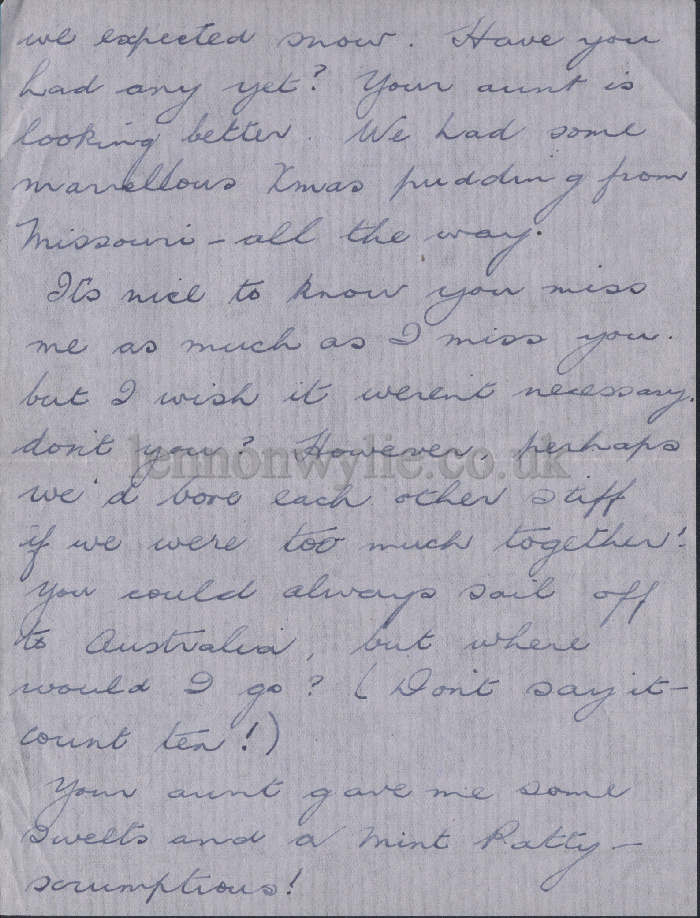 we expected snow. Have you
had any yet? Your aunt is
looking better. We had some
marvellous Xmas pudding from
Missouri - all the way.
It's nice to know you miss
me as much as I miss you.
but I wish it weren't necessary.
don't you? However, perhaps
lennonwylie.co.uk
we'd bore each other stiff
if we were too much together!
You could always sail off
to Australia, but where
would I go? (Don't say it -
count ten!)
Your aunt gave me some
sweets and a Mint Patty -
scrumptious!